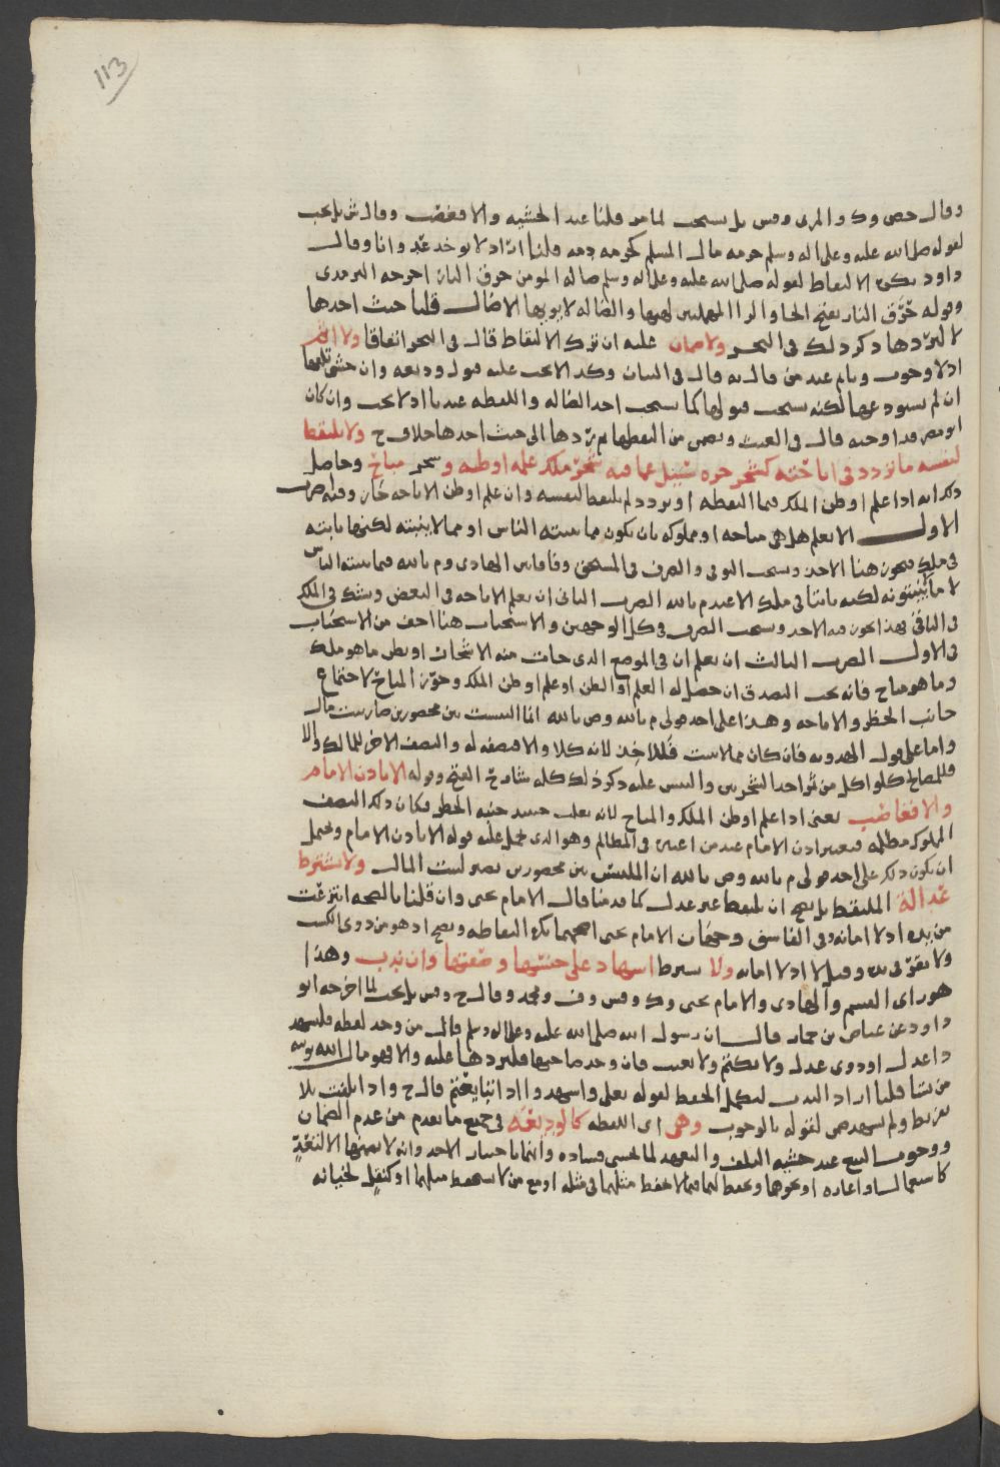 113
وقال حص وك والمزني وقيس بل يستحب لما مر قلنا عند الخشيه والا فغصب وقال ش بل يجب
لقوله صلى الله عليه وعلى اله وسلم حرمه مال المسلم كحرمه دمه قلنا اراد لا يوخذ غصبا وقال
داود يكره الالتقاط لقوله صلى الله عليه وعلى اله وسلم ضاله المومن حرق النار اخرجه الترمذي
وقوله حَرَق النار بفتح الحا والرا المهملتين لهبها والضاله لا يوويها الا ضال قلنا حيث اخذها
لا ليردها ذكر ذلك في البحر ولا ضمان عليه ان ترك الالتقاط قال في البحر اتفاقا ولا اثم
اذ لا وجوب وياثم عند من قال به قال في البيان وكذا لا يجب عليه قبول وديعه وان خشي تلفها
ان لم يستودعها لكنه يستحب قبولها كما يستحب اخذ الضاله واللقطه عندنا اذ لا يجب وان كان
قال في الغيث ويضمن من التقطها ثم ردها الى حيث اخذها خلاف ح ولا يلتقط
لنفسه ما تردد في اباحته كشجر جره سيل عما فيه شجر ملك علمه او ظنه وشجر مباح وحاصل
ذلك انه اذا علم او ظن الملك فيما التقطه او تردد لم يلتقط لنفسه وان علم او ظن الاباحه جاز وفيه ضرب
الاول الا يعلم هل هي مباحه او مملوكه بان يكون مما ينبته الناس او مما لا ينبته لكنها نابته
في ملك فيجوز هنا الاخذ ويستحب التوقي والصرف في المستحق وفاقا بين الهادي وم بالله فيما ينبته الناس
لا ما يُنبتونه لكنه نابتا في ملك الا عند م بالله الضرب الثاني ان يعلم الاباحه في البعض ويشك في الملك
في الباقي فهذا يجوز فيه الاخذ ويستحب الصرف في كل الوجهين والاستحباب هنا اخف من الاستحباب
في الاول الضرب الثالث ان يعلم ان في الموضع الذي جات منه الاشجار او يظن ما هو ملك
وما هو مباح فانه يجب التصدق ان حصل له العلم او الظن او علم او ظن الملك وجوز المباح لاجتماع
جانب الحظر والاباحه وهذا على احد قولي م بالله وص بالله اما التبست بين محصورين صارت بيت مال
واما على قول الهدويه فان كان مما لا ينبت فللاخذ لانه كلا والا فنصفه له والنصف الاخر للمالك والا
فللمصالح كلو اكل من ثمر احد الشجرين والتبس عليه ذكر ذلك كله شارح الفتح وقوله الا باذن الامام
والا فغاصب يعني اذا علم او ظن الملك والمباح لانه يغلب حينئذ جنبه الحظر فكان ذلك النصف
المملوك مظلمه فيعتبر اذن الامام عند من اعتبره في المظالم وهو الذي يحمل عليه قوله الا باذن الامام ويحتمل
ان يكون ذلك على احد قولي م بالله وص بالله ان الملتبس بين محصورين يصير لبيت المال ولا تشترط
عدالة الملتقط بل يصح ان يلتقط غير عدل كما قدمنا قال الامام يحيى وان قلنا بالصحه انتزعت
من يده اذ لا امانه وفي الفاسق وجهان الامام يحيى اصحهما يكره التقاطه ويصح اذ هو من ذوي الكسب
ولا تقر في يده وقيل لا اذ لا امانه ولا يشترط اشهاد على جنسها وصفتها وان ندب وهذا
هو راي القسم والهادي والامام يحيى وك وقيس وف ومحمد وقال ح وقيس بل يجب لما اخرجه ابو
داود عن عياض بن حمار قال ان رسول الله صلى الله عليه وعلى اله وسلم قال من وجد لقطه فليشهد
ذا عدل او ذوي عدل ولا يكتم ولا يغيب فان وجد صاحبها فليردها عليه والا فهو مال الله يوتيه
من يشا قلنا اراد الندب ليكمل الحفظ لقوله تعلى واشهدوا اذا تبايعتم قال ح واذا تلفت بلا
تفريط ولم يشهد ضمن لقوله بالوجوب وهي اي اللقطه كالوديعة في جميع ما تقدم من عدم الضمان
ووجوب البيع عند خشيه التلف والتعهد لما يخشى فساده وانها باختيار الاخذ وانه لا يضمنها الا لتعدٍ
كاستعمال او اعاره او نحوهما وتحفظ فيما لا يحفظ مثلها في مثله او مع من لا يحفظ مثلها او كنقل لخيانه